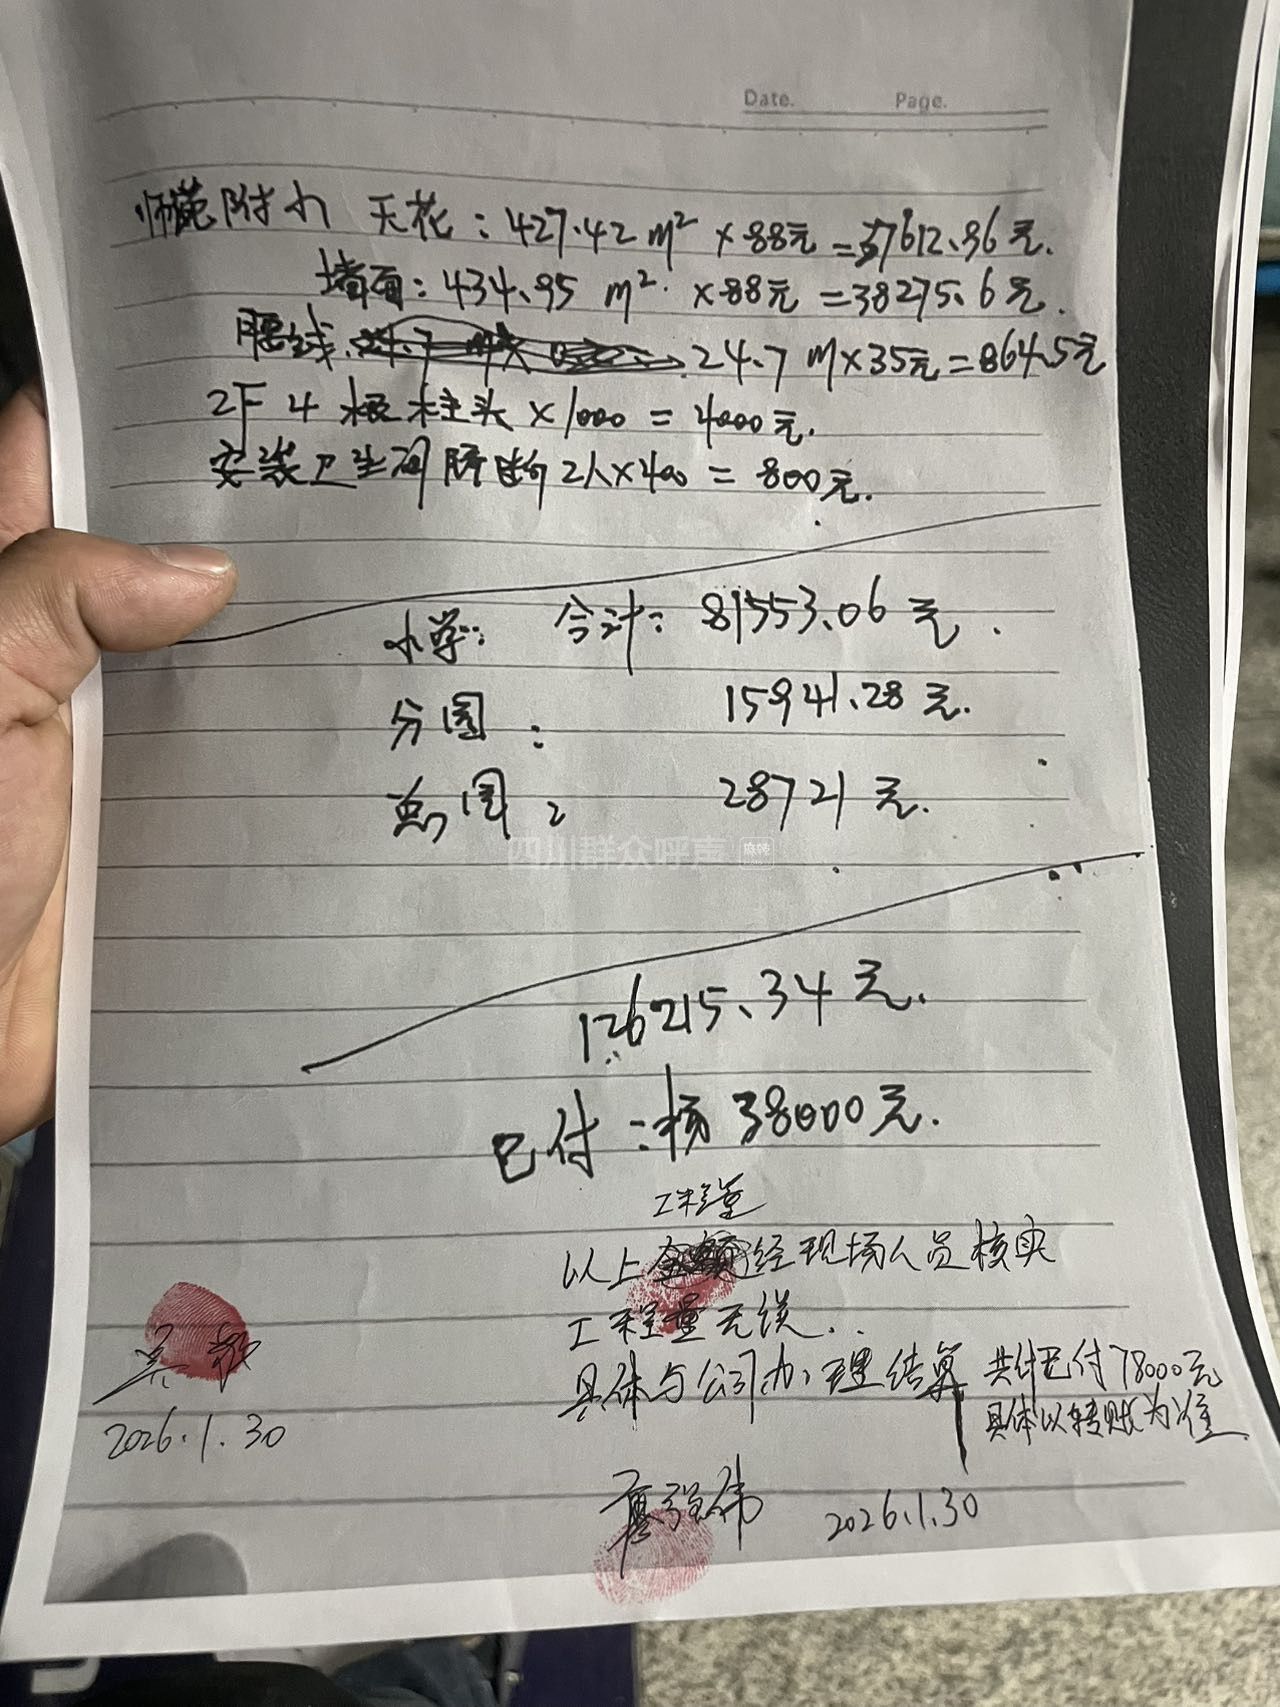 Date. Page.
师范附小 天花：427.42 m² ×88元=37612.96元.
墙面：434.95 m² ×88元=38275.6元.
腰线 24.7 m×35元=864.5元
2F 4根柱头×1000=4000元.
安装卫生间 2人×400=800元.
小学： 合计：81553.06元.
分园： 15941.28元.
总园： 28721元.
四川群众呼声 麻辣
126215.34元.
已付： 38000元.
工程量
以上 经现场人员核实
工程量无误..
具体与公司办理结算 共计已付78000元
具体以转账为准
2026.1.30
强伟 2026.1.30